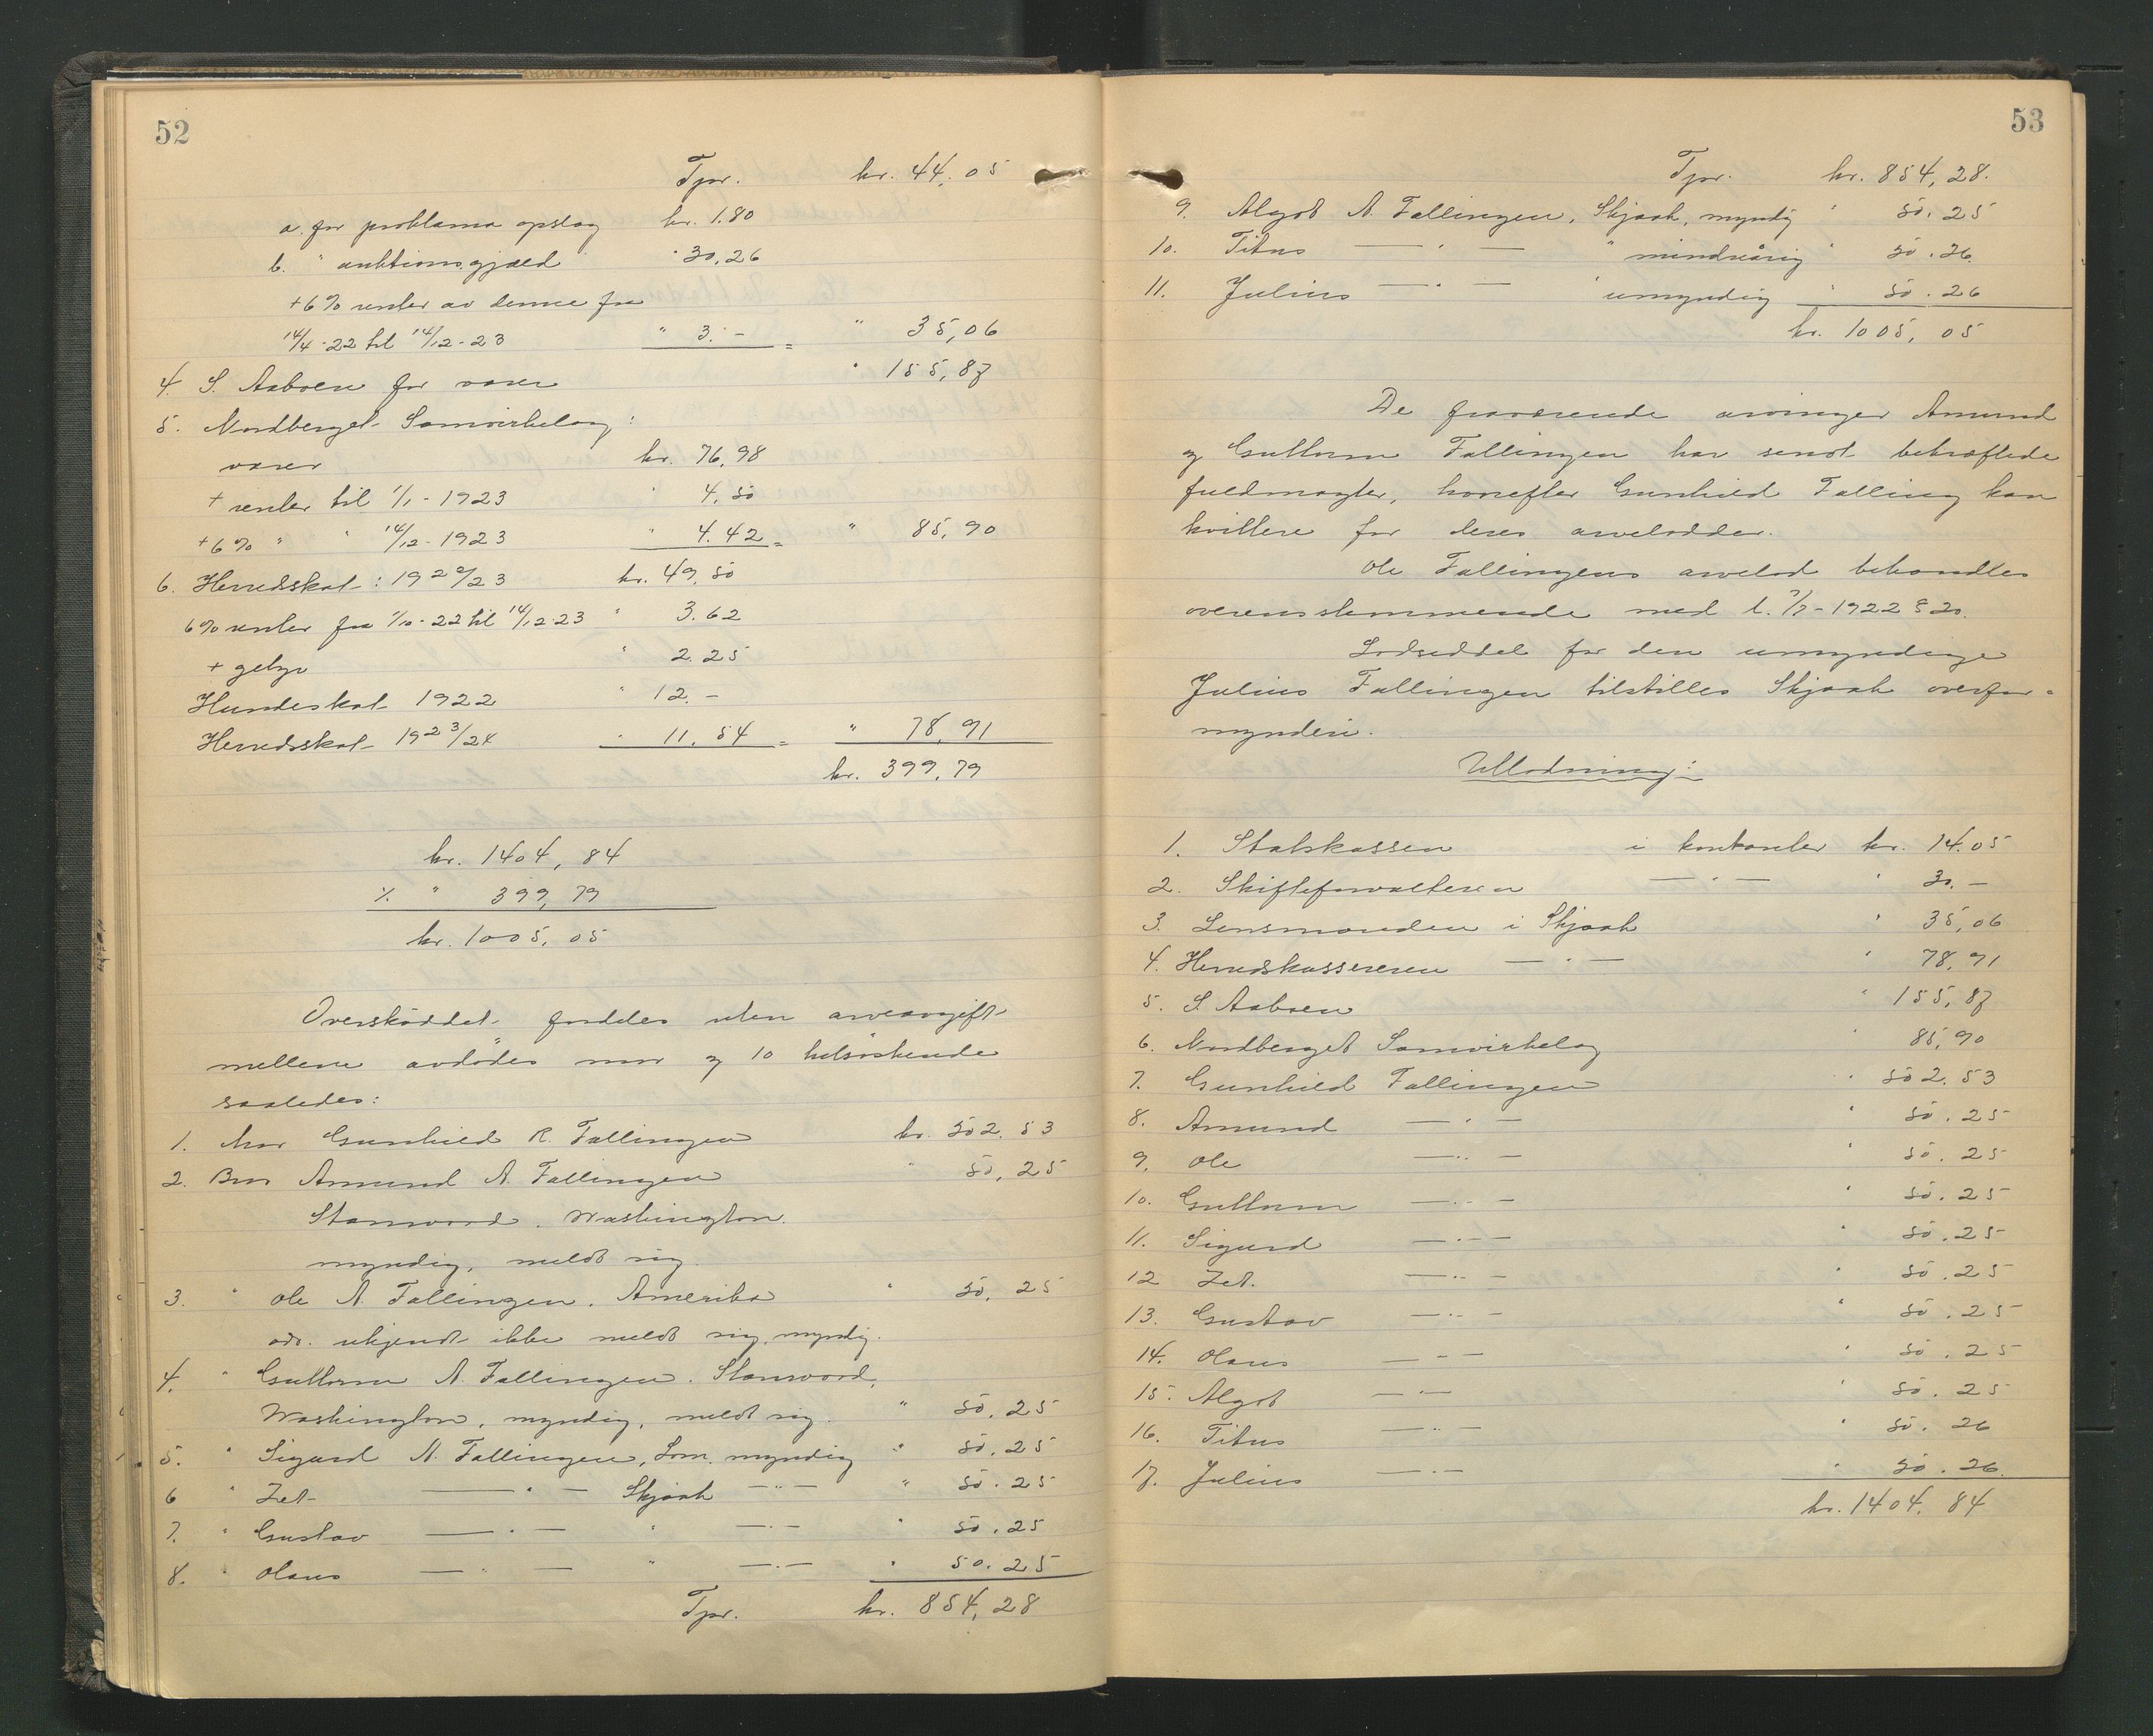 52
Tpr. kr. 44,05
a. for proklama opslag kr. 1.80
b. " auktionsgjæld " 30,26
+ 6 % renter av denne fra
14/4-22 til 14/12-23 " 3.- = " 35,06
4. S. Aaboen for varer " 155,87
5. Nordberget Samvirkelag:
varer kr. 76,98
+ renter til 1/1-1923 " 4.50
+ 6 % " " 14/12-1923 " 4.42 = " 85,90
6. Herredskat: 1922/23 kr. 49,50
6% renter fra 1/10-22 til 14/12-23 " 3.62
+ gebyr " 2.25
Hundeskat 1922 " 12.-
Herredsskat 1923/24 " 11.54 = " 78,91
kr. 399,79
kr. 1404,84
% " 399,79
kr. 1005,05
Overskøddet fordeles uten arveavgift
mellem avdødes mor og 10 helsøskende
saaledes:
1. Mor Gunhild R. Fallingen kr. 502.53
2. Bror Amund A. Fallingen " 50,25
Stanwood, Washington.
myndig, meldt sig.
3. " Ole A. Fallingen, Amerika " 50,25
adr. ukjendt ikke meldt sig, myndig.
4. " Guttorm A. Fallingen. Stanwood,
Washington, myndig, meldt sig. " 50.25
5. " Sigurd A. Fallingen, Lom, myndig " 50.25
6 " Zet — " — Skjaak — " — " 50.25
7. " Gustav — " — " — " — " 50.25
8. " Olaus — " — " — " — " 50.25
Tpr. kr. 854,28
53
Tpr. kr. 854,28.
9. Algot A. Fallingen, Skjaak, myndig " 50.25
10. Titus — " — " mindreårig " 50.26
11. Julius — " — " umyndig " 50.26
kr. 1005,05
De fraværende arvinger Amund
og Guttorm Fallingen har sendt bekræftede
fuldmagter, hvorefter Gunhild Falling kan
kvittere for deres arvelodder.
Ole Fallingens arvelod behandles
overensstemmende med l. 7/7-1922 § 20.
Lodseddel for den umyndige
Julius Fallingen tilstilles Skjaak overfor-
mynderi.
Utlodning:
1. Statskassen i kontanter kr. 14.05
2. Skifteforvalteren — " — " 30.-
3. Lensmanden i Skjaak " 35,06
4. Herredskassereren — " — " 78,91
5. S. Aaboen " 155,87
6. Nordberget Samvirkelag " 85,90
7. Gunhild Fallingen " 502.53
8. Amund — " — " 50.25
9. Ole — " — " 50.25
10. Guttorm — " — " 50.25
11. Sigurd — " — " 50.25
12 Zet. — " — " 50.25
13. Gustav — " — " 50.25
14. Olaus — " — " 50.25
15. Algot — " — " 50.25
16. Titus — " — " 50.26
17. Julius — " — " 50.26
kr. 1404,84